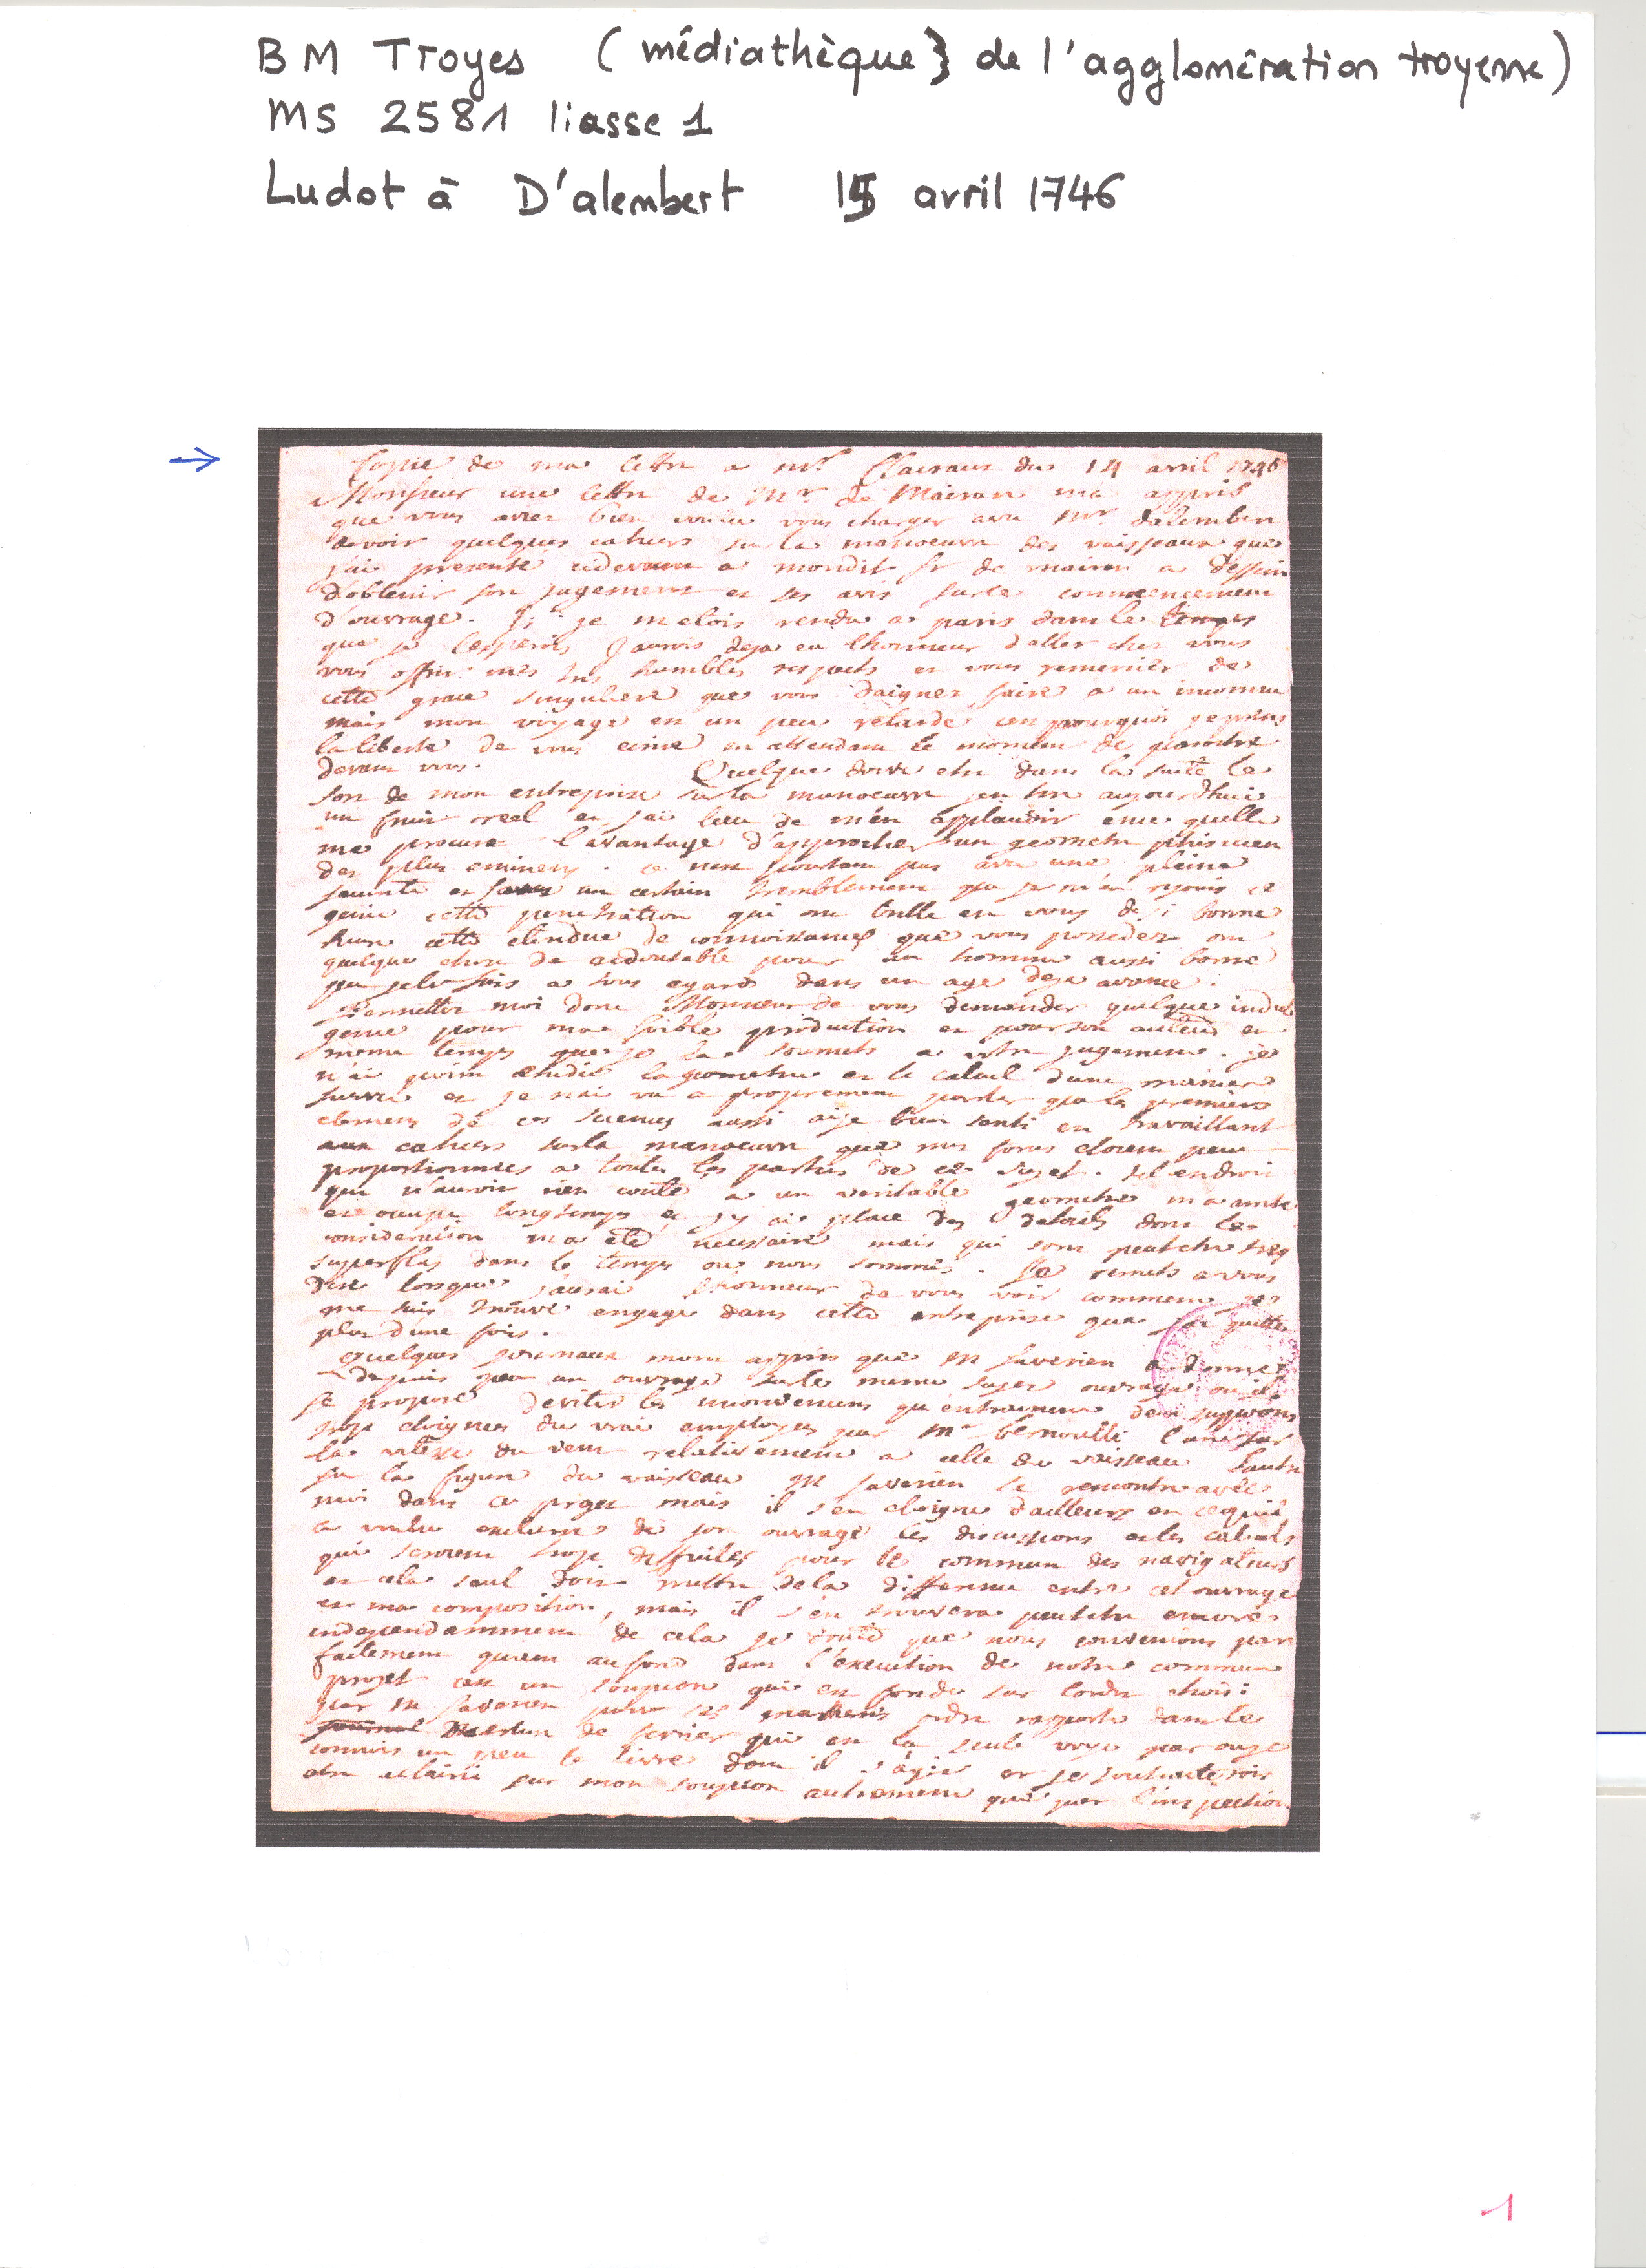 BM Troyes (médiathèque} de l'agglomération troyenne)
MS 2581 liasse 1
Ludot à D'alembert 15 avril 1746
→
Copie de ma lettre a mr. Clairaut du 14 avril 1746
Monsieur une lettre de Mr de Mairan ma appris
que vous aviez bien voulu vous charger avec Mr dalembert
de voir quelques cahiers sur la manoeuvre des vaisseaux que
j'ai presenté cidevant a mondit Sr de mairan a dessein
d'obtenir son jugement et ses avis sur ce commencement
d'ouvrage. Si je metois rendu a paris dans le temps
que je l'esperois j'aurois deja eu lhonneur d'aller chez vous
vous offrir mes tres humbles respects et vous remercier de
cette grace singuliere que vous daignez faire a un inconnu
mais mon voyage est un peu retardé cest pourquoi je prens
la liberté de vous ecrire en attendant le moment de paroitre
devant vous. Quelque doive etre dans la suite le
sort de mon entreprise sur la manoeuvre jen tire aujourdhui
un fruit reel et j'ai lieu de m'en applaudir puis quelle
me procure l'avantage d'approcher un geometre phisicien
des plus eminens. ce nest pourtant pas avec une pleine
securité et sans un certain tremblement que je m'en rejouis ce
genie cette penetration qui ont brillé en vous de si bonne
heure cette etendue de connoissances que vous possedez ont
quelque chose de redoutable pour un homme aussi borné
que je le suis a tous egards dans un age deja avancé.
Permettez moi donc Monsieur de vous demander quelque indul
gence pour ma foible production et pour son auteur en
meme temps que je la soumets a votre jugement. je
n'ai point etudié la geometrie et le calcul dune maniere
suivie et je n'ai vu a proprement parler que les premiers
elemens de ces sciences aussi ai je bien senti en travaillant
aux cahiers sur la manoeuvre que mes forces etoient peu
proportionnées a toutes les parties de ce sujet. tel endroit
qui n'auroit rien couté a un veritable geometre m'a arreté
et occupé longtemps et j'y ai placé des details dont la
consideration m'a eté necessaire mais qui sont peut etre tres
superflus dans le temps ou nous sommes. Je remets a vous
dire lorsque j'aurai lhonneur de vous voir comment je
me suis trouvé engagé dans cette entreprise que j'ai quitté
plus d'une fois.
Quelques journaux mont appris que M saverien a donné
depuis peu un ouvrage sur le meme sujet ouvrage ou il
se propose deviter les inconveniens qu'entrainent deux suppositions
trop eloignées du vrai employées par Mr bernoulli l'une sur
la vitesse du vent relativement a celle du vaisseau lautre
sur la figure du vaisseau M saverien se rencontre avec
moi dans ce projet mais il s'en eloigne d'ailleurs en ce qu'il
a voulu exclure de son ouvrage les discussions et les calculs
qui seroient trop difficiles pour le commun des navigateurs
et cela seul doit mettre de la difference entre cet ouvrage
et ma composition, mais il s'en trouvera peutetre encore
independamment de cela je doute que nous convenions par
faitement quant au fond dans l'execution de notre commun
projet cest un soupcon qui est fondé sur lordre choisi
par M saverien pour ses matieres ordre rapporté dans le
de fevrier qui est la seule voye par ou je
connois un peu le livre dont il s'agit or je souhaiterois
etre eclairci sur mon soupcon autrement que par l'inspection
1